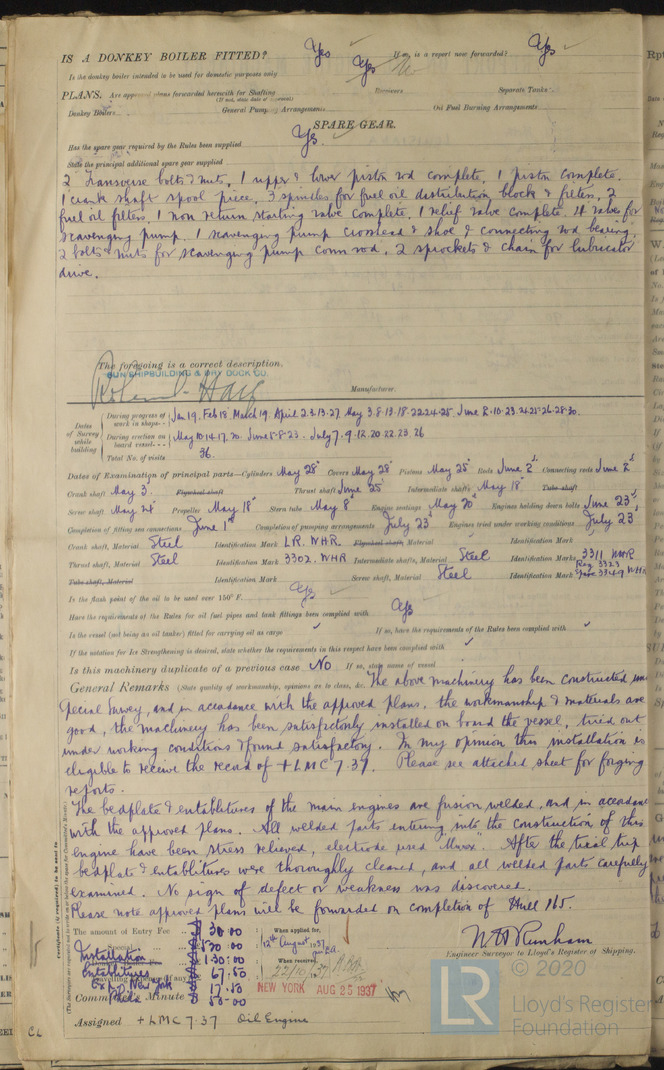 IS A DONKEY BOILER FITTED? Yes If so, is a report now forwarded? Yes
Is the donkey boiler intended to be used for domestic purposes only Yes
PLANS. Are approved plans forwarded herewith for Shafting Receivers Separate Tanks
(If not, state date of approval)
Donkey Boilers General Pumping Arrangements Oil Fuel Burning Arrangements
SPARE GEAR.
Has the spare gear required by the Rules been supplied Yes
State the principal additional spare gear supplied
2 Transverse bolts & nuts, 1 upper & lower piston rod complete, 1 piston complete,
1 crank shaft spool piece, 3 spindles for fuel oil distribution block & filters, 2
fuel oil filters, 1 non return starting valve complete, 1 relief valve complete, 4 valves for
scavenging pump, 1 scavenging pump crosshead & shoe & connecting rod bearing,
2 bolts & nuts for scavenging pump conn rod, 2 sprockets & chain for lubricator
drive.
The foregoing is a correct description,
SUN SHIPBUILDING & DRY DOCK CO.
Manufacturer.
Dates of Survey while building
During progress of work in shops - - Jan 19. Feb 18. March 19. April 2.3.13.27. May 3.8.13.18.22.24.25. June 2.10.23.24.25.26.28.30.
During erection on board vessel - - - May 10.14.17.20. June 5.8.23. July 7.9.12.20.22.23.26
Total No. of visits 36.
Dates of Examination of principal parts—Cylinders May 28 Covers May 28 Pistons May 25 Rods June 2 Connecting rods June 2
Crank shaft May 3 Flywheel shaft Thrust shaft June 25 Intermediate shafts May 18 Tube shaft
Screw shaft May 24 Propeller May 18 Stern tube May 8 Engine seatings May 20 Engines holding down bolts June 23
Completion of fitting sea connections June 1st Completion of pumping arrangements July 23 Engines tried under working conditions July 23
Crank shaft, Material Steel Identification Mark LR. WHR. Flywheel shaft, Material Identification Mark
Thrust shaft, Material Steel Identification Mark 3302. WHR Intermediate shafts, Material Steel Identification Marks 3311 WHR
Tube shaft, Material Identification Mark Screw shaft, Material Steel Identification Mark
Is the flash point of the oil to be used over 150° F. Yes
Have the requirements of the Rules for oil fuel pipes and tank fittings been complied with Yes
Is the vessel (not being an oil tanker) fitted for carrying oil as cargo If so, have the requirements of the Rules been complied with
If the notation for Ice Strengthening is desired, state whether the requirements in this respect have been complied with
Is this machinery duplicate of a previous case No If so, state name of vessel
General Remarks (State quality of workmanship, opinions as to class, &c. The above machinery has been constructed under
Special Survey, and in accordance with the approved plans. the workmanship & materials are
good, the machinery has been satisfactorily installed on board the vessel, tried out
under working conditions & found satisfactory. In my opinion this installation is
eligible to receive the record of +LMC 7.37. Please see attached sheet for forging
reports.
The bedplate & entablitures of the main engines are fusion welded, and in accordance
with the approved plans. All welded parts entering into the construction of this
engine have been stress relieved, electrode used Murex. After the trial trip
bedplate & entablitures were thoroughly cleaned, and all welded parts carefully
examined. No sign of defect or weakness was discovered.
Please note approved plans will be forwarded on completion of Hull 165.
The amount of Entry Fee .. $ 30.00 When applied for,
Special $ 530.00 12th August 1937
Installation $ 130:00
Entablitures $ 67.50 When received,
Exp. New York $ 17.50 22/10/37
Committee's Minute Phila $ 53.00 NEW YORK AUG 25 1937
Engineer Surveyor to Lloyd's Register of Shipping.
Assigned +LMC 7.37 Oil Engine
© 2020
LR
Lloyd's Register
Foundation